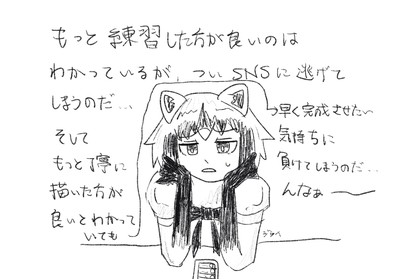 もっと練習した方が良いのは
わかっているが、ついSNSに逃げて
しまうのだ…
そして
もっと丁寧に
描いた方が
良いとわかって
いても
早く完成させたい
気持ちに
負けてしまうのだ…
んなぁ——